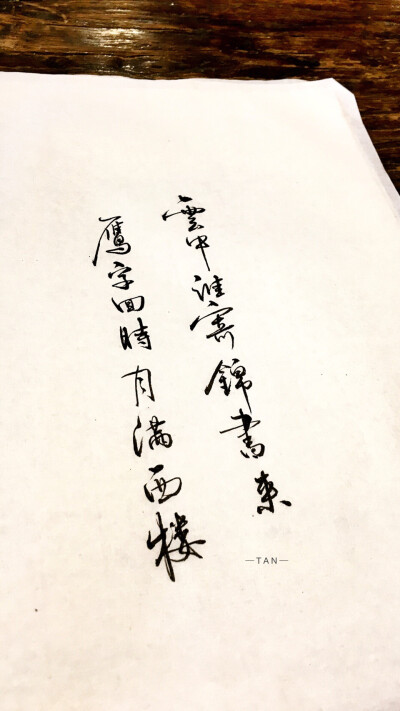 雲中誰寄錦書來
鴈字回時月滿西樓
—TAN—